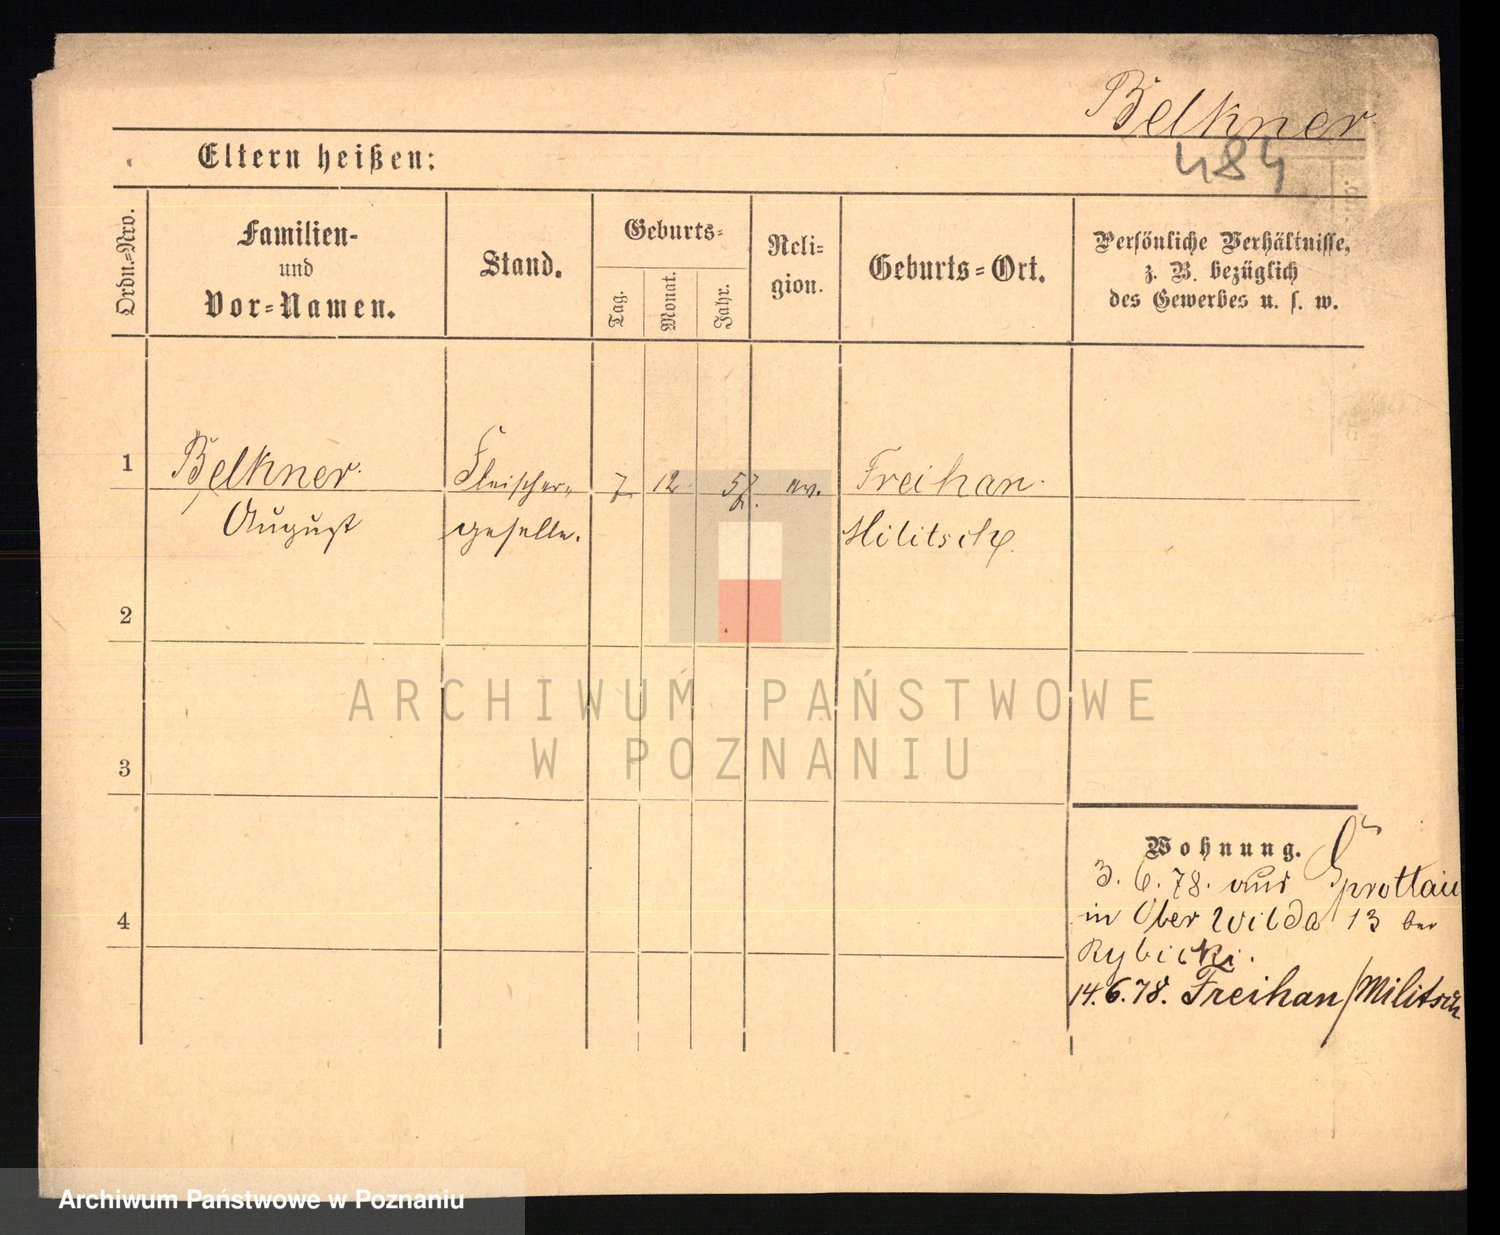 Belkner
484
Eltern heißen:
Ordn.-Nro.
Familien-
und
Vor-Namen.
Stand.
Geburts-
Tag.
Monat.
Jahr.
Reli-
gion.
Geburts-Ort.
Persönliche Verhältnisse,
z. B. bezüglich
des Gewerbes u. s. w.
1
Belkner
August
Fleischer-
geselle.
7
12
57.
ev.
Freihan.
Militsch.
2
ARCHIWUM PAŃSTWOWE
W POZNANIU
3
Wohnung.
3. 6. 78. aus Sprottau
in Ober Wilda 13 bei
Rybicki.
14. 6. 78. Freihan/Militsch
4
Archiwum Państwowe w Poznaniu